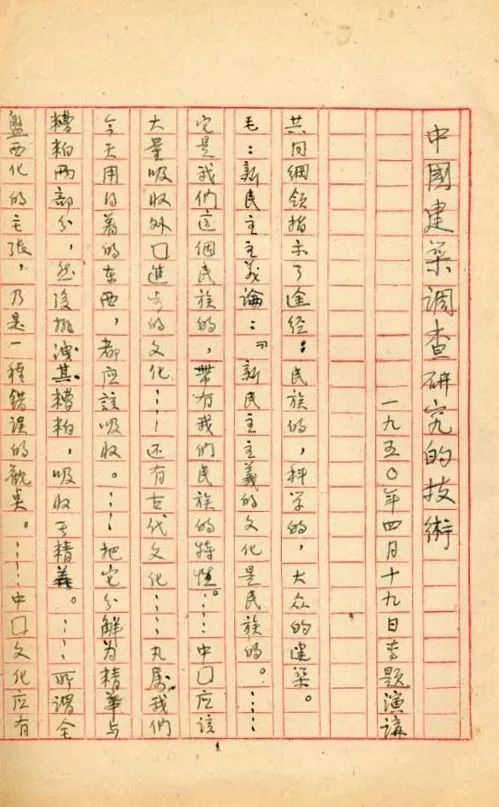 中國建築調查研究的技術
一九五〇年四月十九日专题演講
共同綱领指示了途经：民族的，科学的，大众的建築。
毛：新民主主義論：“新民主主義的文化是民族的。……
它是我們這個民族的，带有我們民族的特性。……中囗应该
大量吸收外囗進步的文化……还有古代文化……凡属我們
今天用得着的东西，都应該吸收。……把它分解为精華与
糟粕两部分，然後排洩其糟粕，吸收其精華。……所谓全
盤西化的主張，乃是一種错误的觀奌。……中囗文化应有